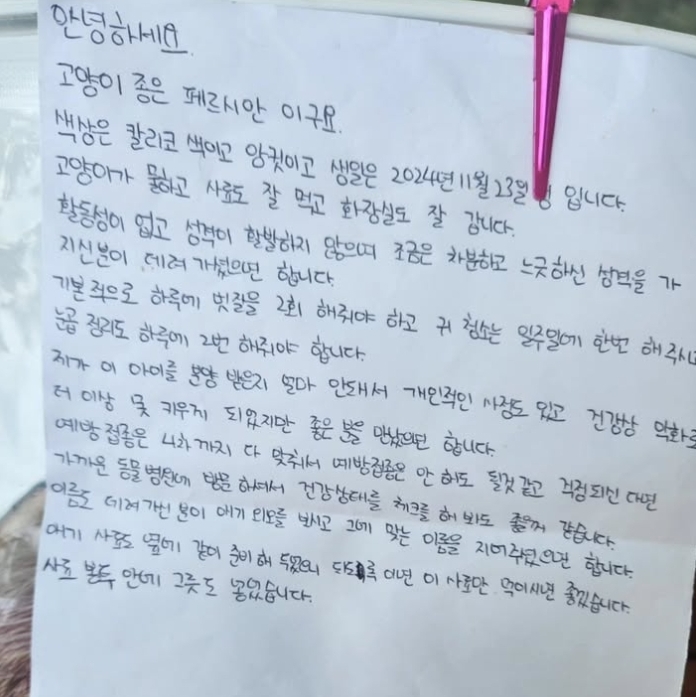 안녕하세요.
고양이 종은 페르시안 이구요.
색상은 칼리코 색이고 암컷이고 생일은 2024년 11월 23일 입니다.
고양이가 순하고 사료도 잘 먹고 화장실도 잘 갑니다.
활동성이 없고 성격이 활발하지 않으며 조금은 차분하고 느긋하신 성격을 가
지신분이 데려 가셨으면 합니다.
기본적으로 하루에 빗질을 2회 해줘야 하고 귀 청소는 일주일에 한번 해주시고
눈곱 정리도 하루에 2번 해줘야 합니다.
제가 이 아이를 분양 받은지 얼마 안돼서 개인적인 사정도 있고 건강상 악화로
더 이상 못 키우게 되었지만 좋은 분을 만났으면 합니다.
예방접종은 4차까지 다 맞춰서 예방접종은 안 해도 될것 같고 걱정되신 다면
가까운 동물병원에 방문 하셔서 건강상태를 체크를 해 봐도 좋을꺼 같습니다.
이름도 데려가신 분이 애기 외모를 보시고 그에 맞는 이름을 지어주셨으면 합니다.
애기 사료도 옆에 같이 준비해 두었으니 되도록 이면 이 사료만 먹이시면 좋겠습니다.
사료 봉투 안에 그릇도 넣었습니다.